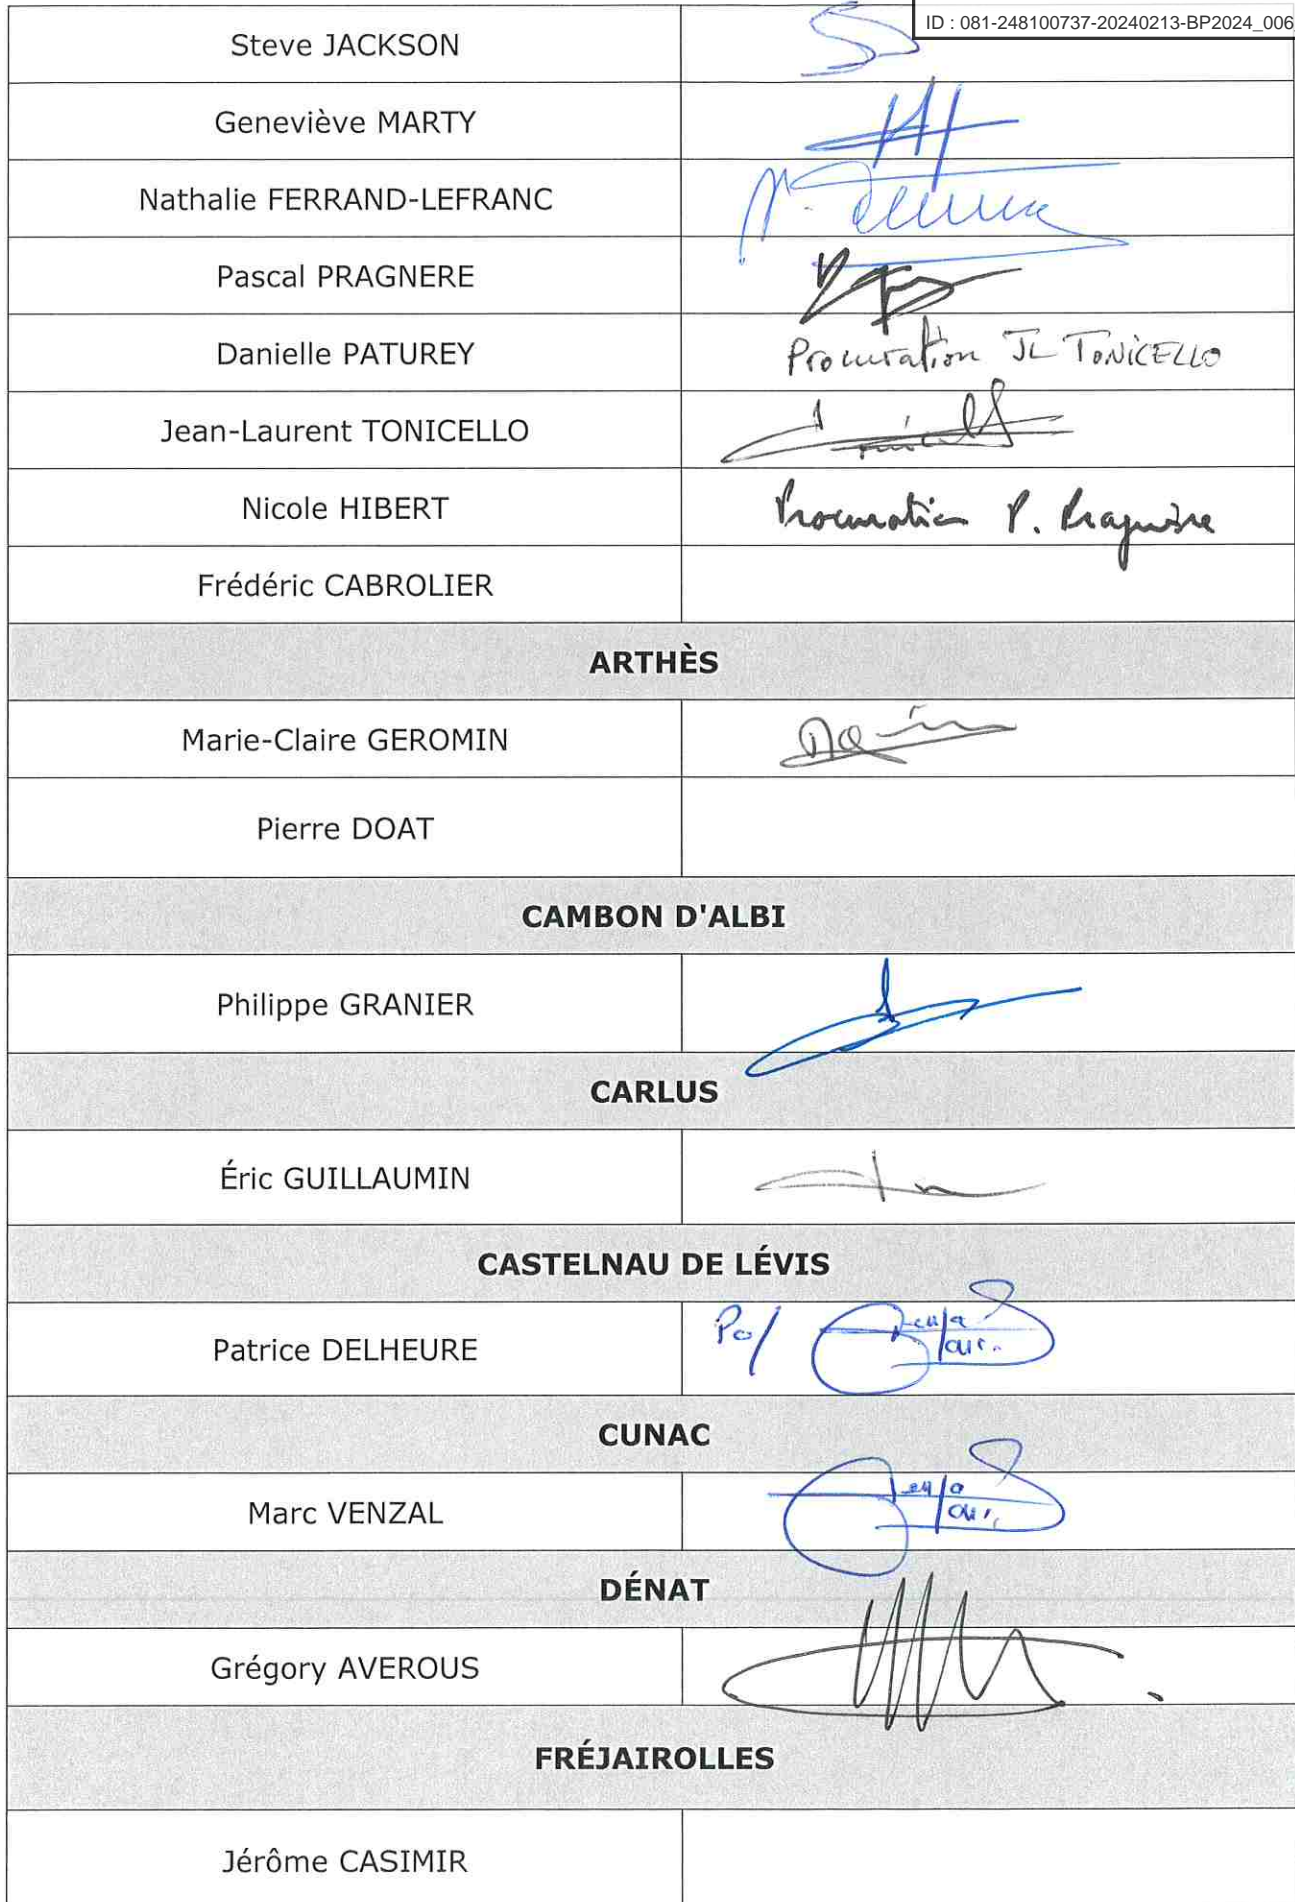 ID : 081-248100737-20240213-BP2024_006
Steve JACKSON
Geneviève MARTY
Nathalie FERRAND-LEFRANC
Pascal PRAGNERE
Danielle PATUREY Procuration JL TONICELLO
Jean-Laurent TONICELLO
Nicole HIBERT Procuration P. Pragnère
Frédéric CABROLIER
ARTHÈS
Marie-Claire GEROMIN
Pierre DOAT
CAMBON D'ALBI
Philippe GRANIER
CARLUS
Éric GUILLAUMIN
CASTELNAU DE LÉVIS
Patrice DELHEURE
CUNAC
Marc VENZAL
DÉNAT
Grégory AVEROUS
FRÉJAIROLLES
Jérôme CASIMIR